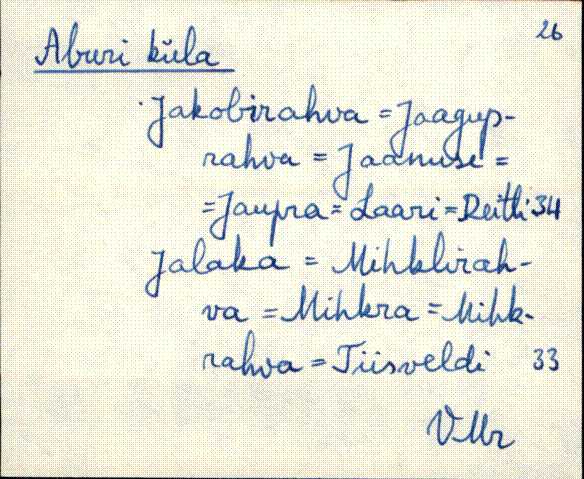 26
Aburi küla
Jakobirahva = Jaagup-
rahva = Jaanuse =
= Jaupra = Laari = Reitli 34
Jalaka = Mihklirah-
va = Mihkra = Mihk-
rahva = Tiisveldi 33
VMr